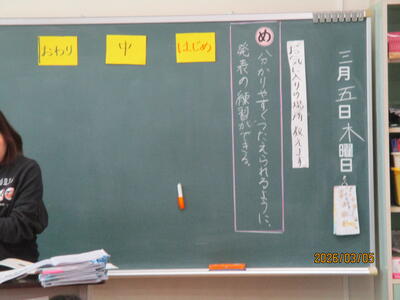 三月五日木曜日
お気に入りの場所教えます
め
分かりやすくつたえられるように、
発表の練習ができる。
はじめ
中
おわり
2026/03/05